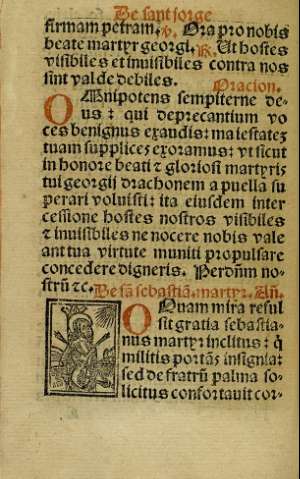 De sant jorge
firmam petram. ℣. Ora pro nobis
beate martyr georgi. ℟. Ut hostes
visibiles et invisibiles contra nos
sint valde debiles. Oracion.
OMnipotens sempiterne de-
us: qui deprecantium vo
ces benignus exaudis: maiestatez
tuam supplices exoramus: vt sicut
in honore beati ⁊ gloriosi martyris
tui georgij drachonem a puella su
perari voluisti: ita eiusdem inter
cessione hostes nostros visibiles
⁊ invisibiles ne nocere nobis vale
ant tua virtute muniti propulsare
concedere digneris. Per dñm no-
strũ ⁊c. De sã sebastiã. martyr. Añ.
OQuam mira reful
sit gratia sebastia-
nus martyr inclitus: q̃
militis portãs insignia:
sed de fratrũ palma so-
licitus confortauit cor-